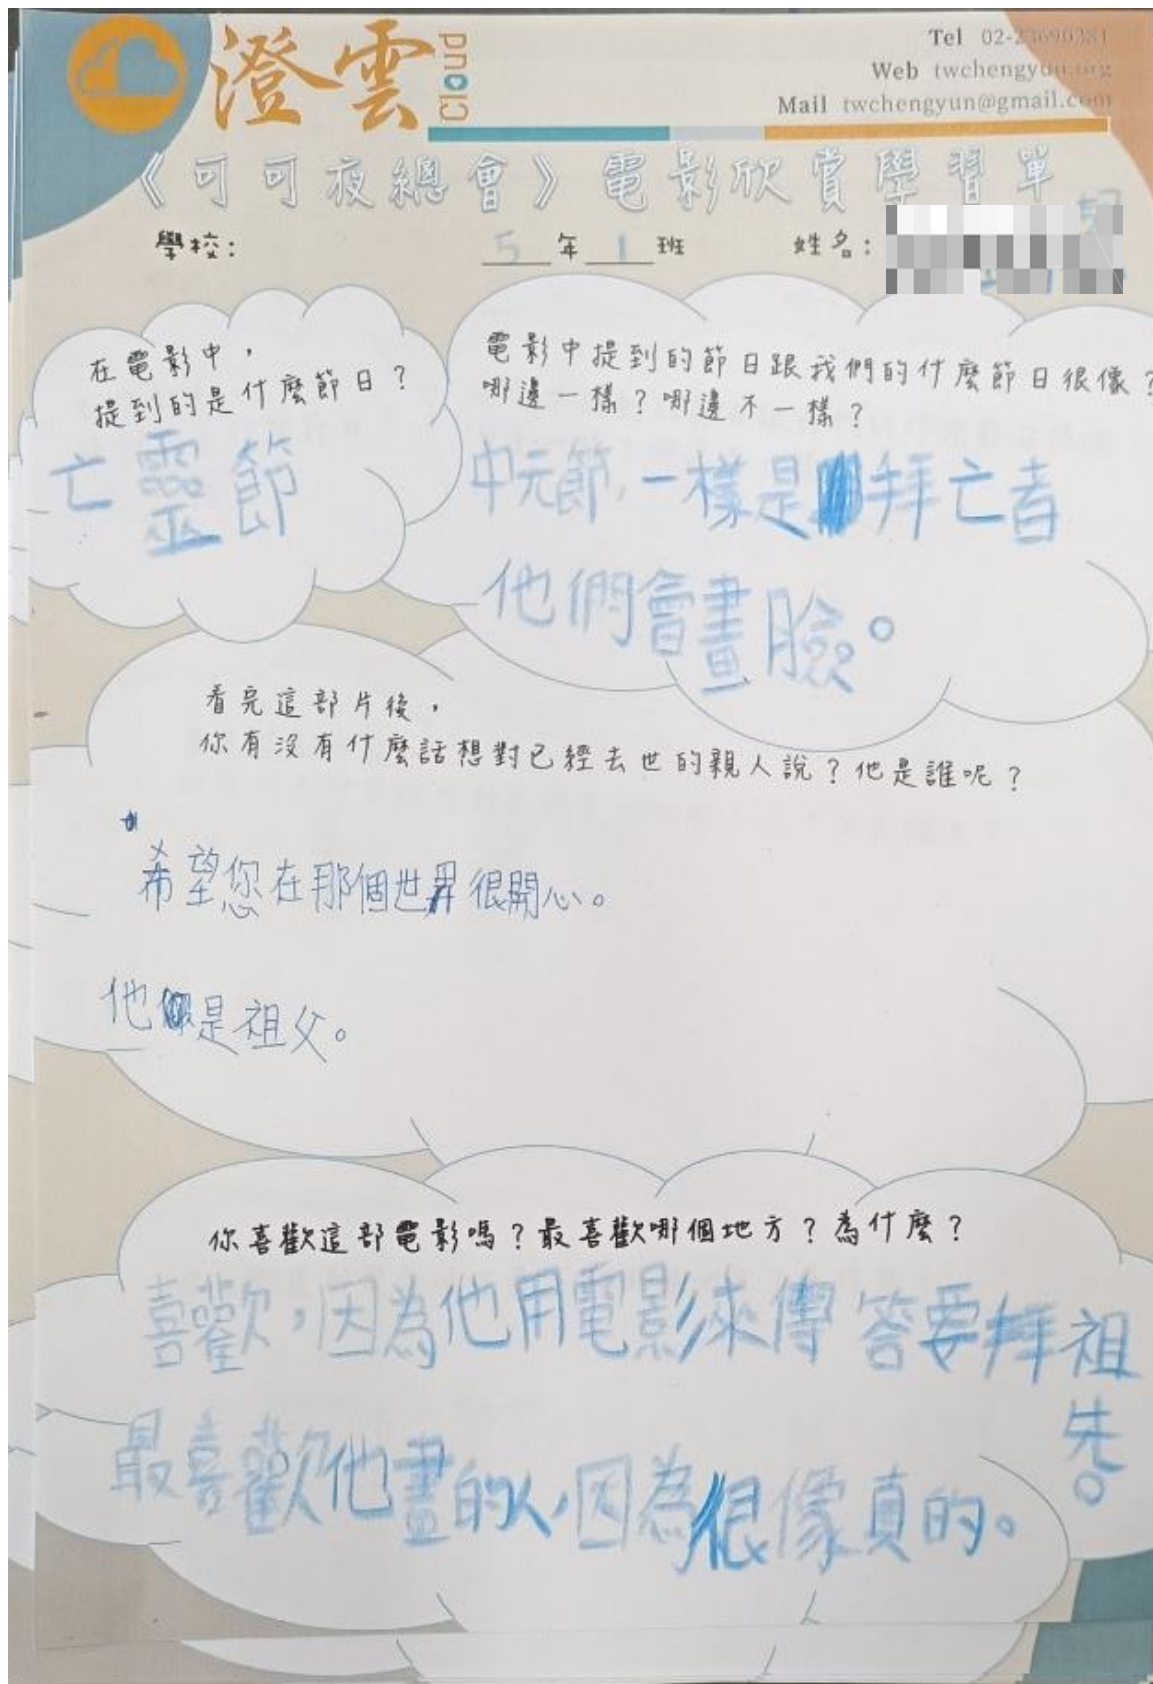 澄雲
Cloud
Tel 02-23690381
Web twchengyun.org
Mail twchengyun@gmail.com
《可可夜總會》電影欣賞學習單
學校： 5年1班 姓名：
在電影中，
提到的是什麼節日？
亡靈節
電影中提到的節日跟我們的什麼節日很像？
哪邊一樣？哪邊不一樣？
中元節,一樣是拜亡者
他們會畫臉。
看完這部片後，
你有沒有什麼話想對已經去世的親人說？他是誰呢？
希望您在那個世界很開心。
他是祖父。
你喜歡這部電影嗎？最喜歡哪個地方？為什麼？
喜歡,因為他用電影來傳答要拜祖先。
最喜歡他畫的人,因為很像真的。